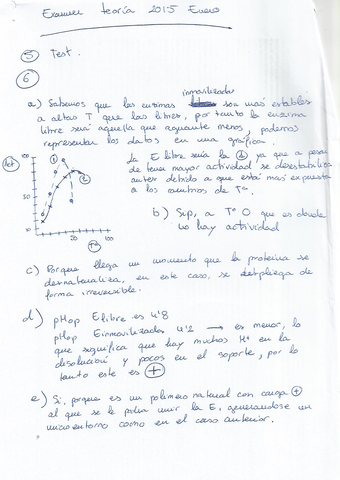 Examen teoría 2015 Enero
5 Test.
6
a) Sabemos que las enzimas inmovilizadas son mas estables
a altas T que las libres, por tanto la enzima
libre será aquella que aguante menos, podemos
representar los datos en una gráfica.
La E libre sería la 1 ya que a pesar
de tener mayor actividad se desestabiliza
antes debido a que está mas expuesta
a los cambios de Tª.
Act
100
50
10
1
2
20
100
Tª
b) Sup, a Tª 0 que es donde
no hay actividad
c) Porque llega un momento que la proteína se
desnaturaliza, en este caso se despliega de
forma irreversible.
d) pHop E libre es 4'8
pHop E inmovilizadas 4'2 → es menor, lo
que significa que hay muchos H+ en la
disolución y pocos en el soporte, por lo
tanto este es +
e) Si, porque es un polímero natural con carga +
al que se le podría unir la E, generandose un
microentorno como en el caso anterior.